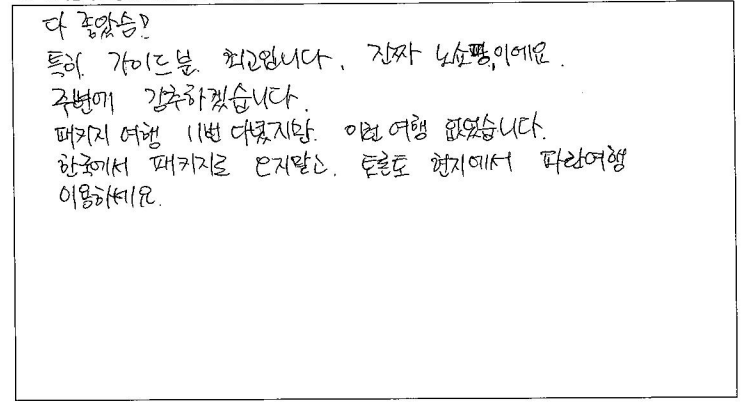 다 좋았슴!!
특히 가이드분 최고입니다. 진짜 노쇼핑이에요.
주변에 강추하겠습니다.
패키지 여행 11번 다녔지만 이런 여행 없었습니다.
한국에서 패키지로 오지말고 토론토 현지에서 파란여행
이용하세요.